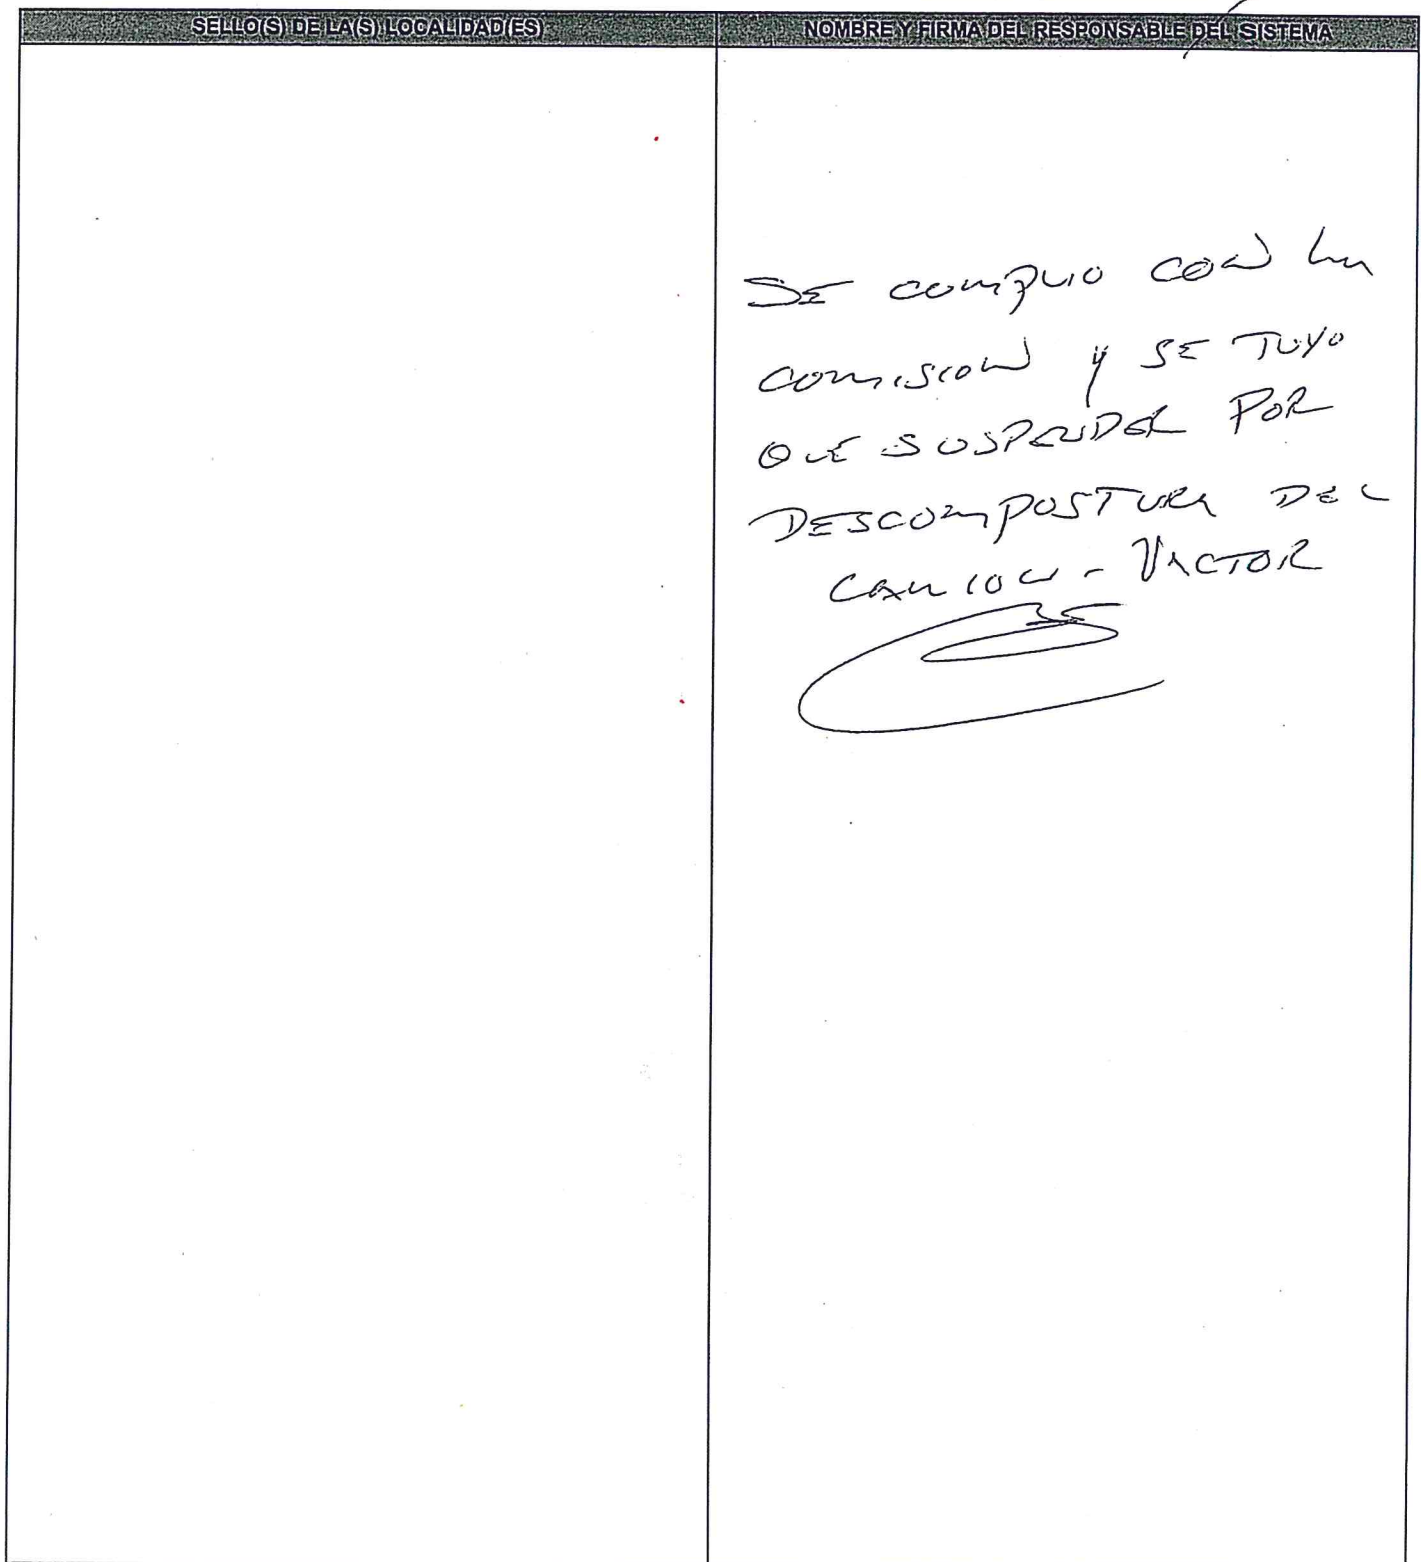 SELLO(S) DE LA(S) LOCALIDAD(ES)
NOMBRE Y FIRMA DEL RESPONSABLE DEL SISTEMA
SE COMPLIO CON LA
COMISION Y SE TUVO
QUE SUSPENDER POR
DESCOMPOSTURA DEL
CAMION - VACTOR